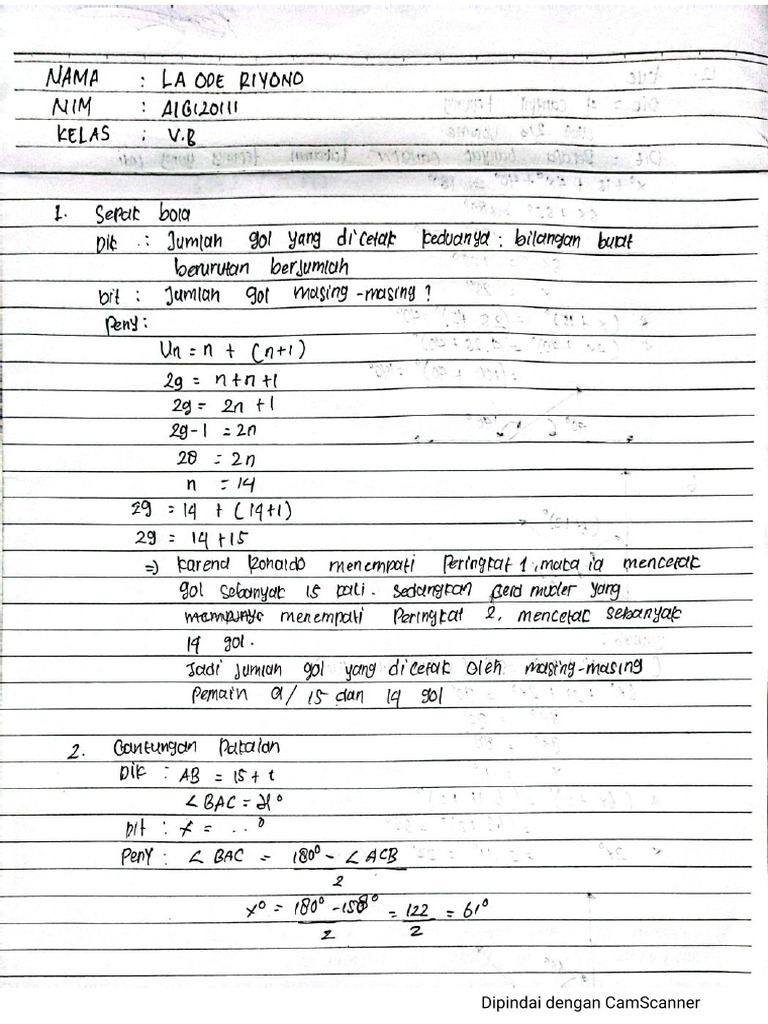 NAMA : LA ODE RIYONO
NIM : A1G120111
KELAS : V.B
1. Sepak bola
Dik : Jumlah gol yang dicetak keduanya : bilangan bulat
berurutan berjumlah
Dit : Jumlah gol masing-masing?
Peny:
Un = n + (n+1)
29 = n+n+1
29 = 2n +1
29-1 = 2n
28 = 2n
n = 14
29 = 14 + (14+1)
29 = 14+15
=> Karena Ronaldo menempati Peringkat 1, maka ia mencetak
gol sebanyak 15 kali. Sedangkan Gerd muder yang
menempati Peringkat 2, mencetak sebanyak
14 gol.
Jadi jumlah gol yang dicetak oleh masing-masing
Pemain a/ 15 dan 14 gol
2. Gantungan Pakaian
Dik : AB = 15 + t
∠ BAC = x°
Dit : x = ...°
Peny : ∠ BAC = 180° - ∠ ACB
2
x° = 180° - 158° = 122 = 61°
2 2
Dipindai dengan CamScanner